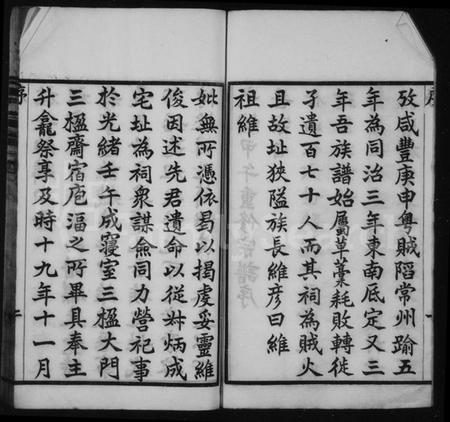 攷咸豐庚申粤賊䧟常州踰五
年為同治三年東南厎定又三
年吾族譜始屬草藁耗敗轉徙
孑遺百七十人而其祠為賊火
且故址狹隘族長維彦曰維
祖維
妣無所憑依曷以揭虔妥靈維
俊因述先君遺命以從弟炳成
宅址為祠衆謀僉同力營祀事
於光緒壬午成寢室三楹大門
三楹齋宿庖湢之所畢具奉主
升龕祭享及時十九年十一月
序